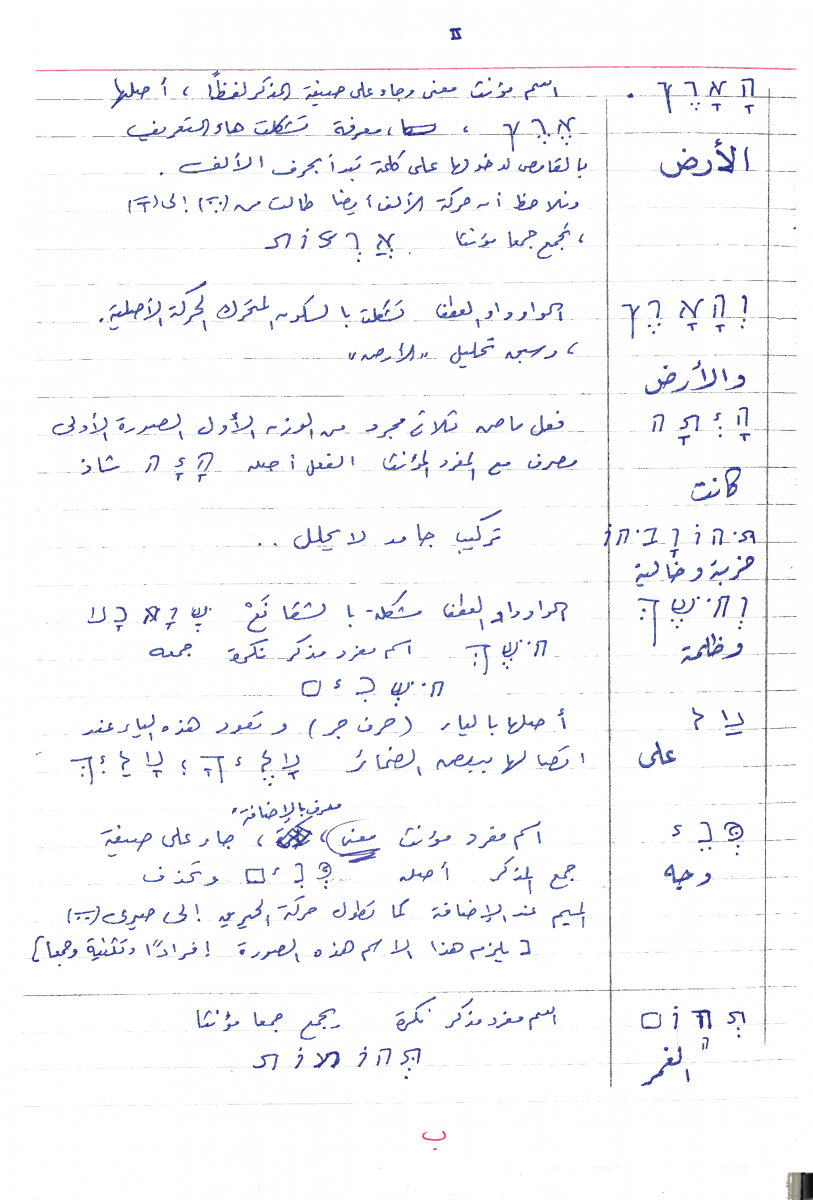 II
הָאָרֶץ . اسم مؤنث معنى وجاء على صيغة المذكر لفظًا ، أصلها
אֶרֶץ ، معرفة تشكلت هاء التعريف
الأرض
بالقامص لدخولها على كلمة تبدأ بحرف الألف .
ونلاحظ أن حركة الألف أيضا طالت من (ֶ) إلى (ָ)
، تجمع جمعا مؤنثا אֲרָצוֹת
וְהָאָרֶץ الواو واو العطف تشكلت بالسكون المتحرك الحركة الأصلية .
، وسبق تحليل "الأرض"
والأرض
הָיְתָה فعل ماض ثلاثي مجرد من الوزن الأول الصورة الأولى
مصرف مع المفرد المؤنث الفعل أصله הָיָה شاذ
كانت
תֹהוּ וָבֹהוּ تركيب جامد لا يحلل ..
خربة وخالية
וְחֹשֶׁךְ الواو واو العطف مشكلة بالشفا نَعْ שְׁוָא נָע
חֹשֶׁךְ اسم مفرد مذكر نكرة جمعه
وظلمة
חֹשֶׁכִים
עַל أصلها بالياء (حرف جر) وتعود هذه الياء عند
على
اتصالها ببعض الضمائر עָלֶיךָ ، עָלַיִךְ
معرف بالإضافة
פְּנֵי اسم مفرد مؤنث معنى ، جاء على صيغة
وجه
جمع المذكر أصله פָּנִים وتحذف
الميم عند الإضافة كما تطول حركة الحيريق إلى صيرى (ֵ)
[ يلزم هذا الاسم هذه الصورة إفرادًا وتثنية وجمعا ]
תְהוֹם اسم مفرد مذكر نكرة ويجمع جمعا مؤنثا
ה
الغمر
תְּהוֹמוֹת
ب